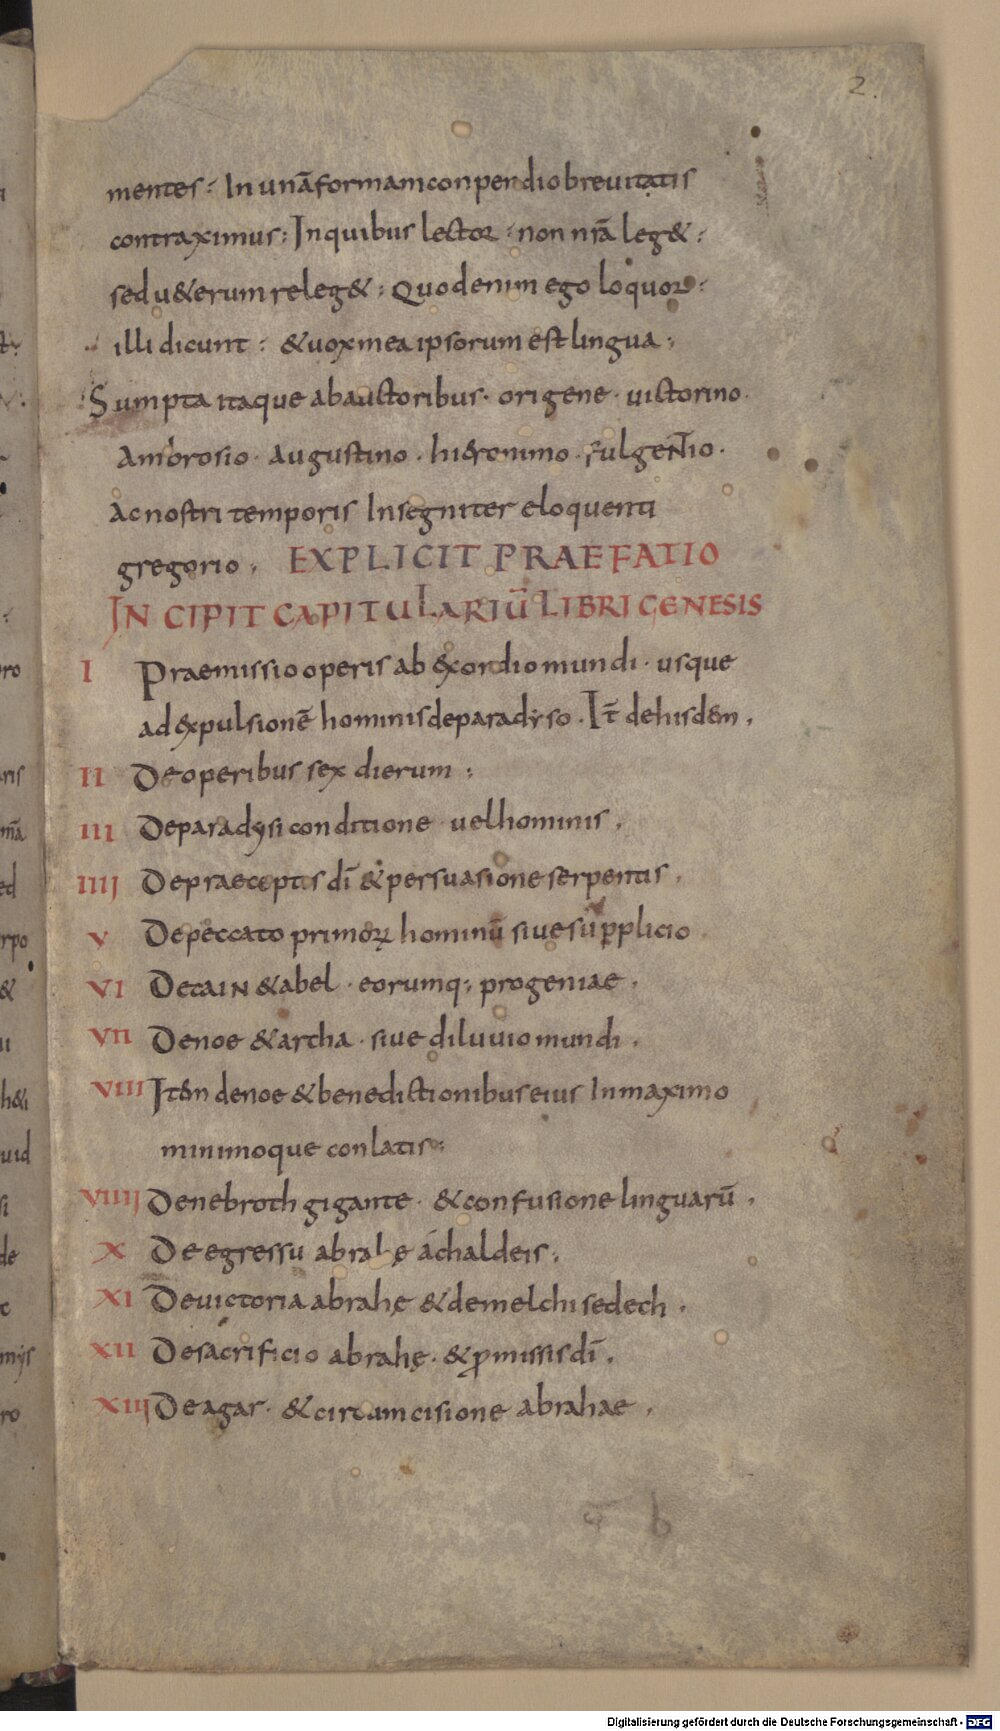 2.
mentes: In unā formam conpendio breuitatis
contraximus: Inquibus lector · non nr̄a leg& :
sed u&erum releg& : Quod enim ego loquor :
illi dicunt : & uox mea ipsorum est lingua ;
Sumpta itaque ab auctoribus · origene · uictorino ·
ambrosio · augustino · hieronimo · fulgentio ·
ac nostri temporis Insegniter eloquenti
gregorio , EXPLICIT PRAEFATIO
INCIPIT CAPITULARIŪ LIBRI GENESIS
I Praemissio operis ab exordio mundi · usque
ad expulsionē hominis de paradyso · It̄ de hisdem ,
II De operibus sex dierum ;
III De paradysi conditione uel hominis ,
IIII De praeceptis dī & persuasione serpentis ,
V De peccato primorꝝ hominū siue supplicio
VI De cain & abel · eorumq; progeniae ,
VII De noe & archa · siue diluuio mundi ,
VIII Item de noe & benedictionibus eius In maximo
minimoque conlatis ;
VIIII De nebroth gigante · & confusione linguarū ,
X De egressu abrahę a chaldeis ;
XI De uictoria abrahę & de melchisedech ,
XII De sacrificio abrahę · & ꝓmissis dī ,
XIII De agar · & circumcisione abrahae ,
b
Digitalisierung gefördert durch die Deutsche Forschungsgemeinschaft - DFG